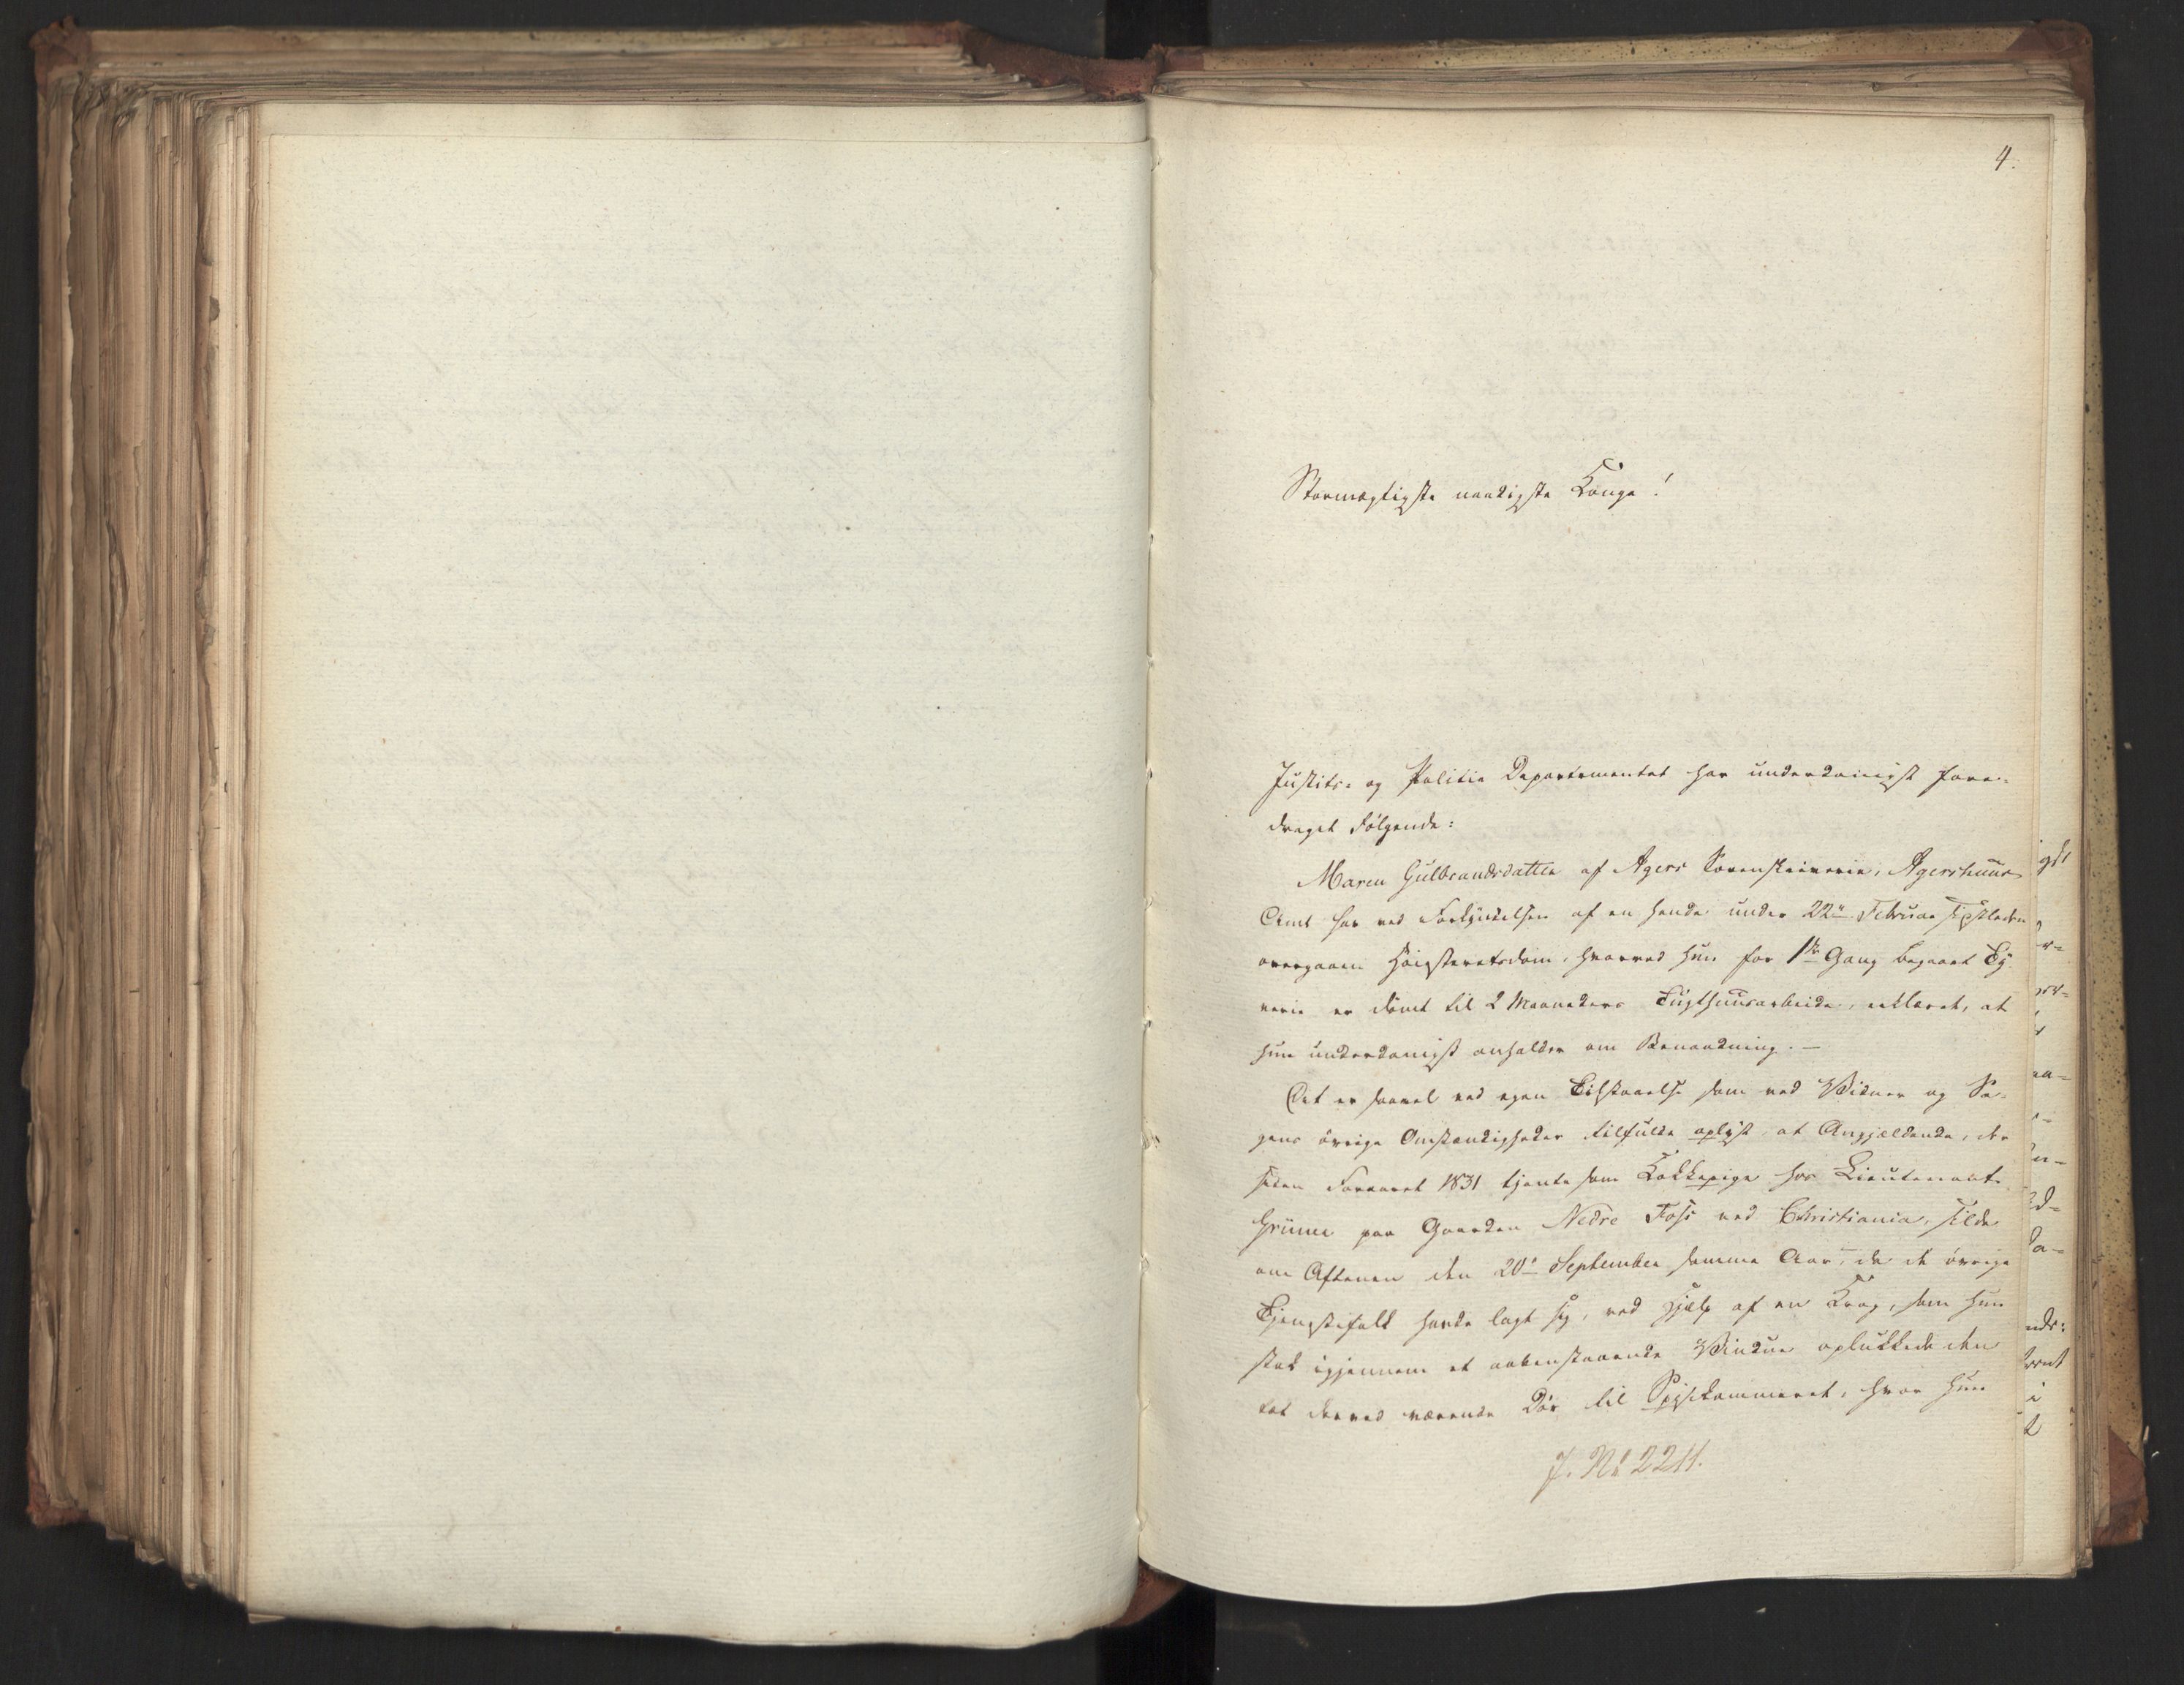 4.
Stormægtigste naadigste Konge!
Justits- og Politie Departementet har underdanigst fore-
draget Følgende:
Maren Gulbrandsdatter af Agers Sorenskriverie, Agershuus
Amt har ved Forkyndelsen af en hende under 22de Februar sidstleden
overgaaen Høiesteretsdom, hvorved hun for 1ste Gang begaaet Ty-
verie er dømt til 2 Maaneders Tugthuusarbeide, erklæret, at
hun underdanigst anholder om Benaadning. —
Det er saavel ved egen Tilstaaelse som ved Vidner og Sa-
gens øvrige Omstændigheder tilfulde oplyst, at Angjældende, der
siden Foraaret 1831 tjente som Kokkepige hos Lieutenant
Grüner paa Gaarden Nedre Foss ved Christiania, silde
om Aftenen den 20de September samme Aar, da de øvrige
Tjenestefolk havde lagt sig, ved Hjælp af en Krog, som hun
stak igjennem et aabenstaaende Vindue oplukkede den
tæt derved værende Dør til Spisekammeret, hvor hun
J. No 2211.